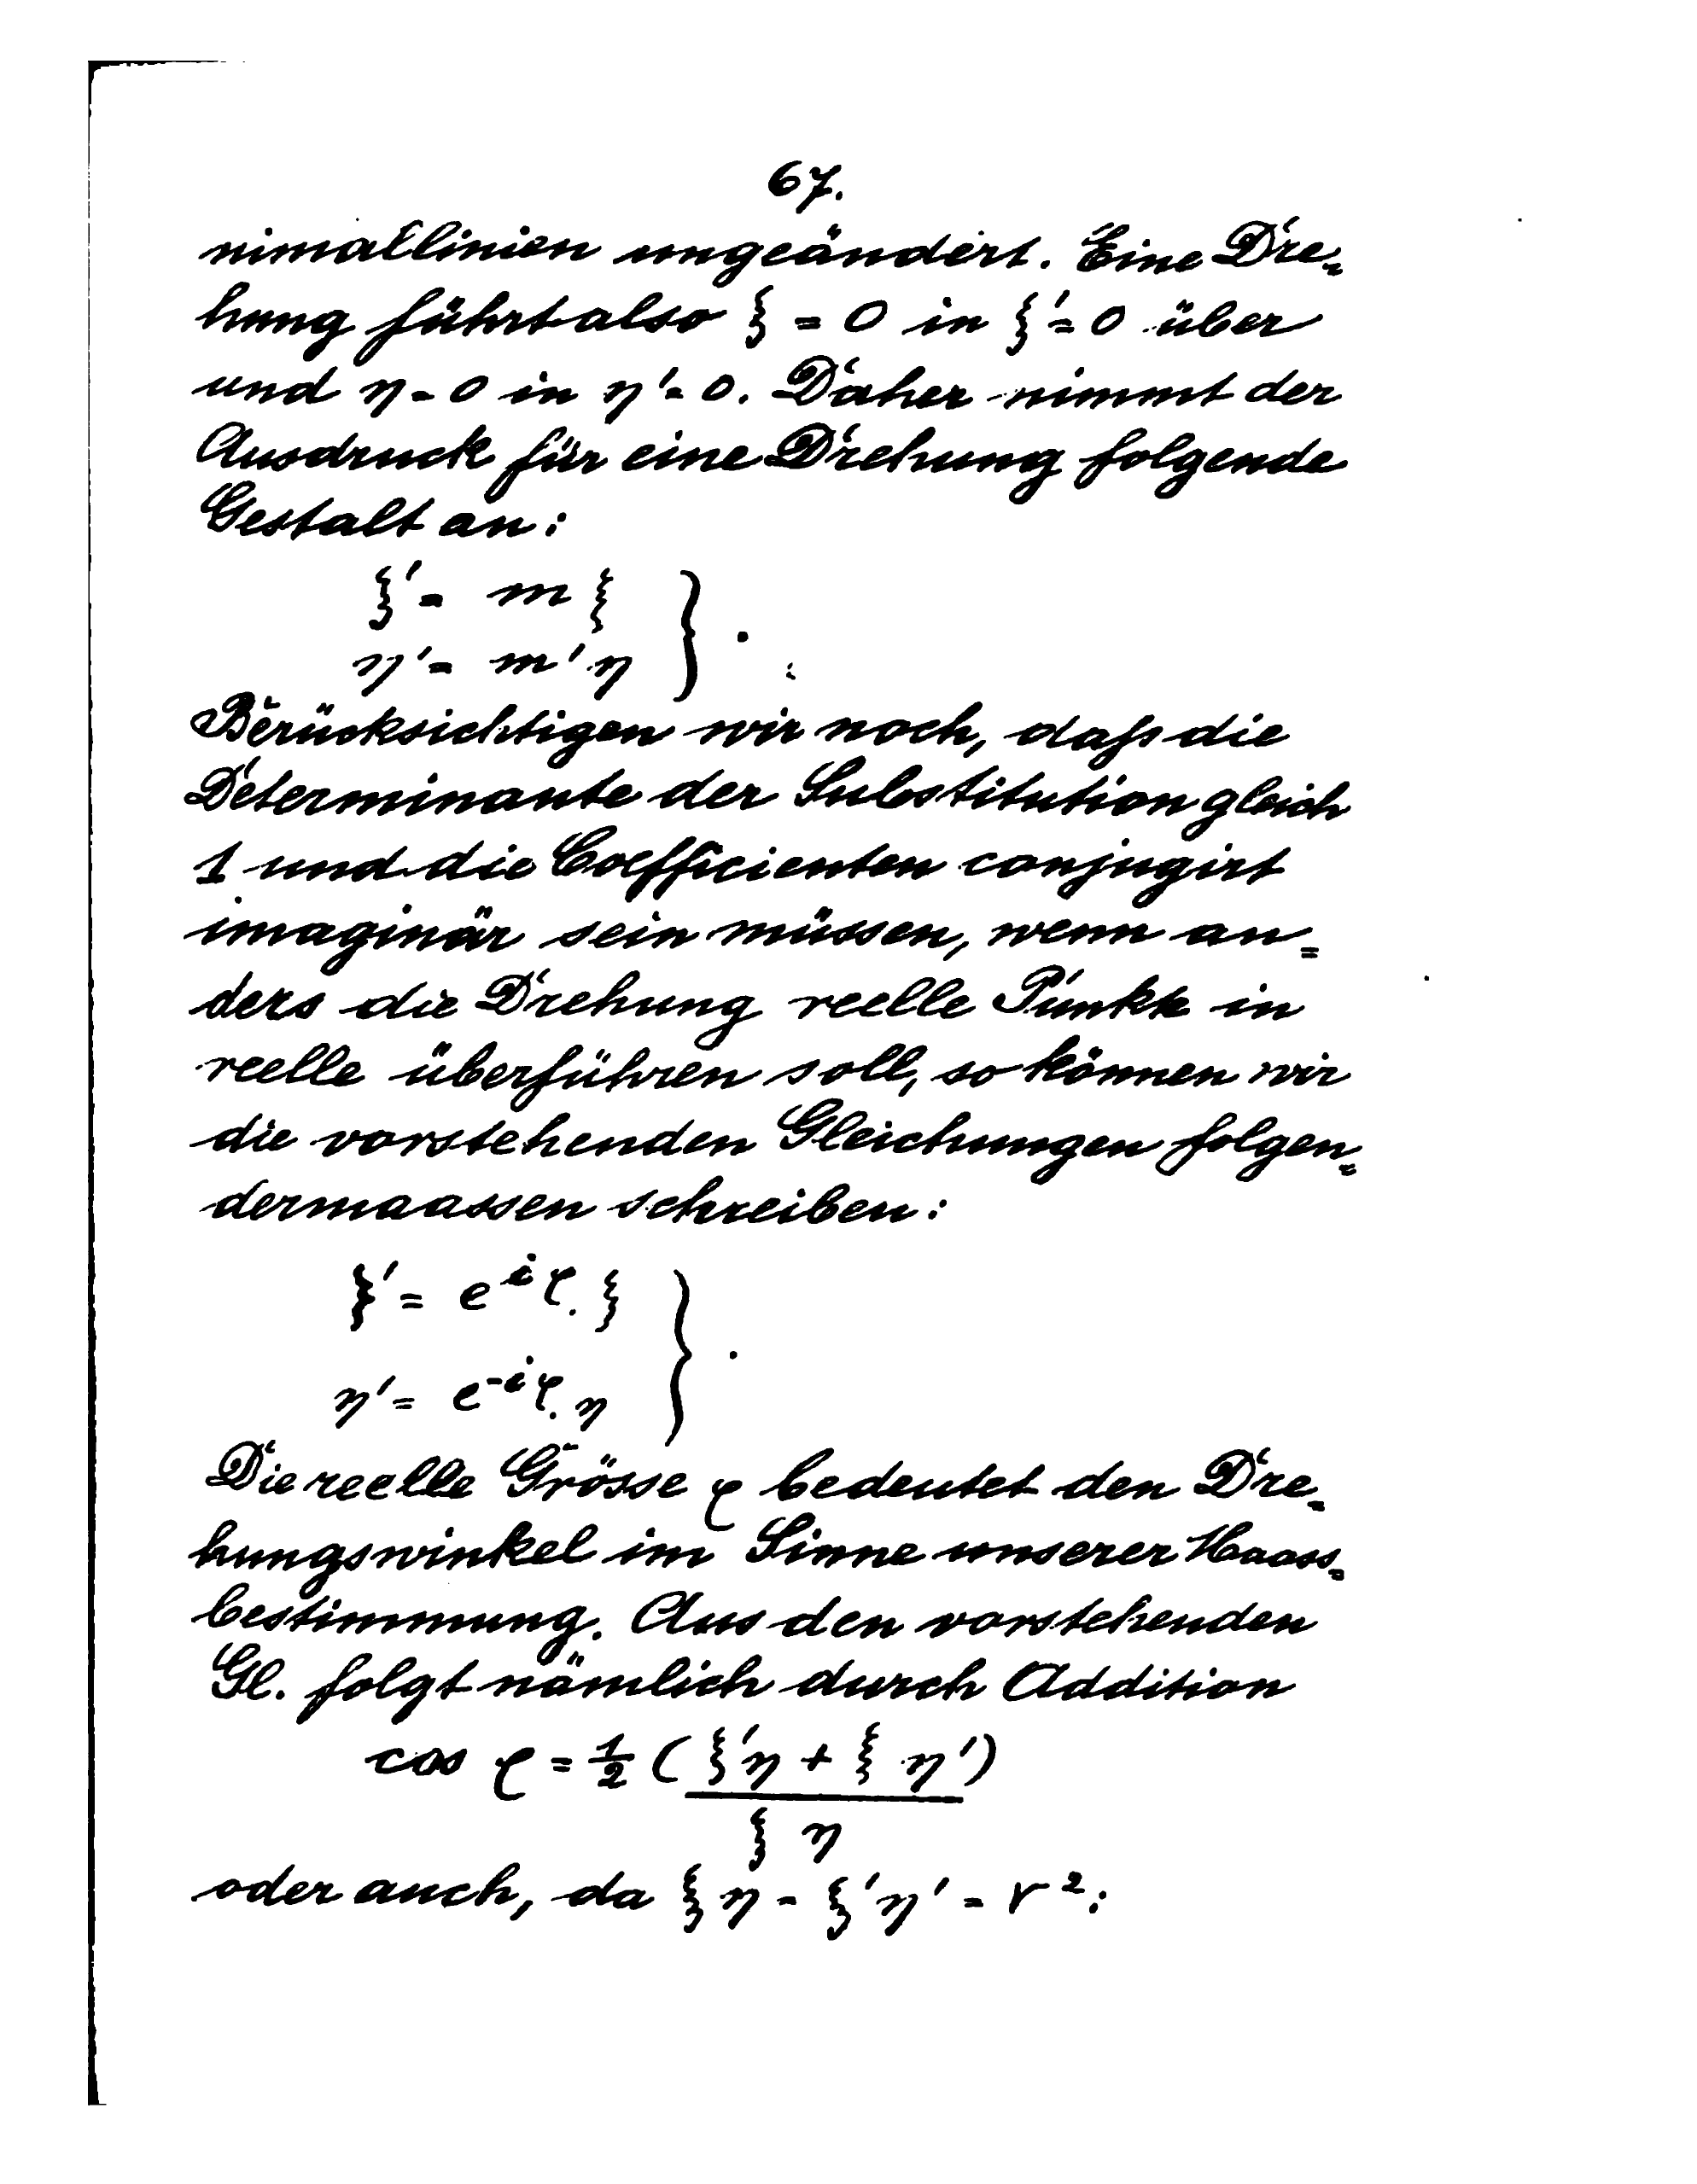 67.
nimallinien ungeändert. Eine Dre=
hung führt also ξ = 0 in ξ' = 0 über
und η = 0 in η' = 0. Daher nimmt der
Ausdruck für eine Drehung folgende
Gestalt an:
ξ' = m ξ
η' = m' η } .
Berücksichtigen wir noch, daß die
Determinante der Substitution gleich
1 und die Coefficienten conjugirt
imaginär sein müssen, wenn an=
ders die Drehung reelle Punkte in
reelle überführen soll, so können wir
die vorstehenden Gleichungen folgen=
dermaassen schreiben:
ξ' = e^{iφ}. ξ
η' = e^{-iφ}. η } .
Die reelle Grösse φ bedeutet den Dre=
hungswinkel im Sinne unserer Maass=
bestimmung. Aus den vorstehenden
Gl. folgt nämlich durch Addition
cos φ = 1/2 (ξ'η + ξ η')
ξ η
oder auch, da ξ η = ξ' η' = r²: